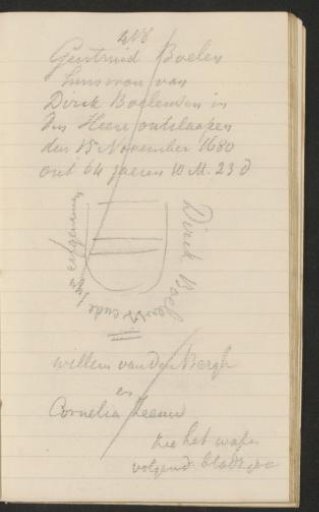 418
Geertruid Boelen
huisvrou van
Dirck Boelensen in
den Heere ontslaapen
den 15 November 1680
out 64 jaeren 10 M. 23 d
Dirck Boel
ende
Willem van den Bergh
en
Cornelia Leeuw
zie het wapen
volgend bladz